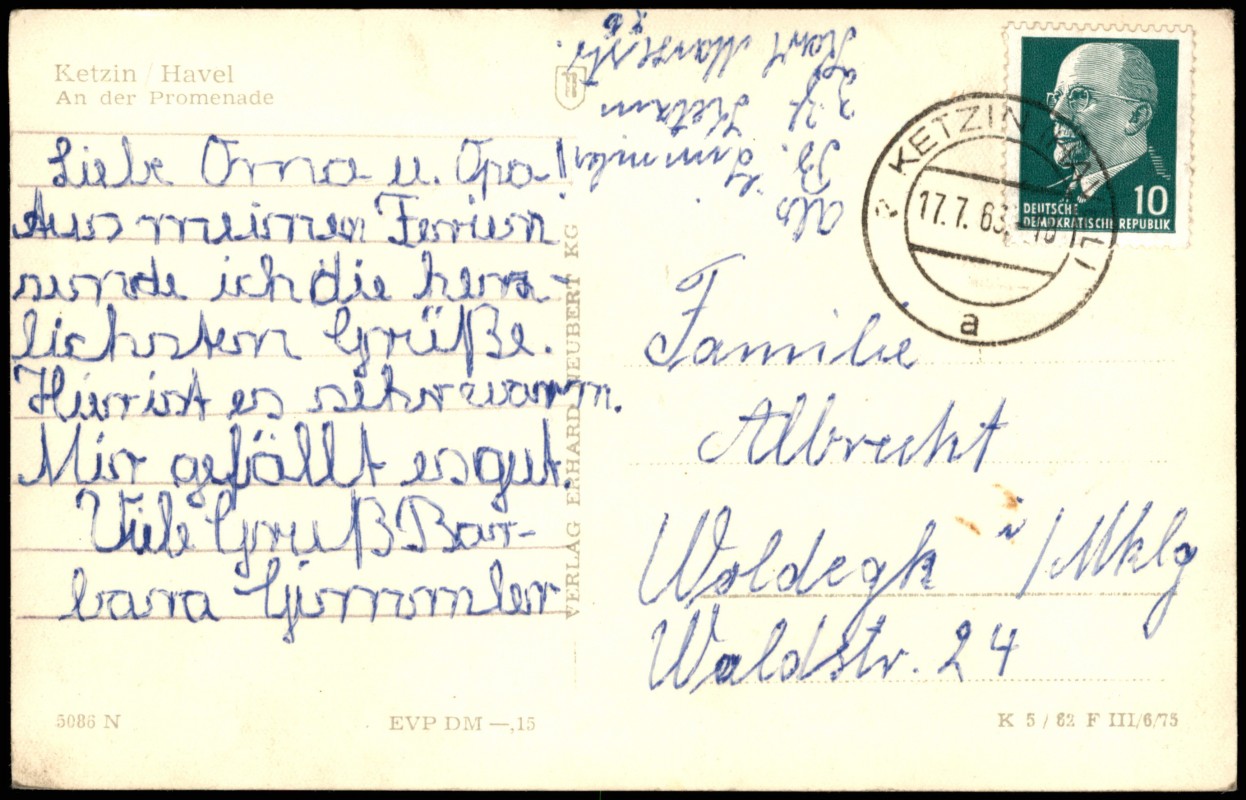 Ketzin / Havel
An der Promenade
Liebe Oma u. Opa!
Aus meinen Ferien
sende ich die herz-
lichsten Grüße.
Hier ist es sehr warm.
Mir gefällt es gut.
Viele Gruß Bar-
bara Gimmler
VERLAG ERHARD NEUBERT KG
Abs
B. Gimmler
z.Zt. Ketzin
Karl Marxstr.
26
KETZIN (HAVEL)
17.7.63
a
DEUTSCHE
DEMOKRATISCHE REPUBLIK
10
Familie
Albrecht
Woldegk i/Mklg
Waldstr. 24
5086 N
EVP DM —,15
K 5 / 62 F III/6/75